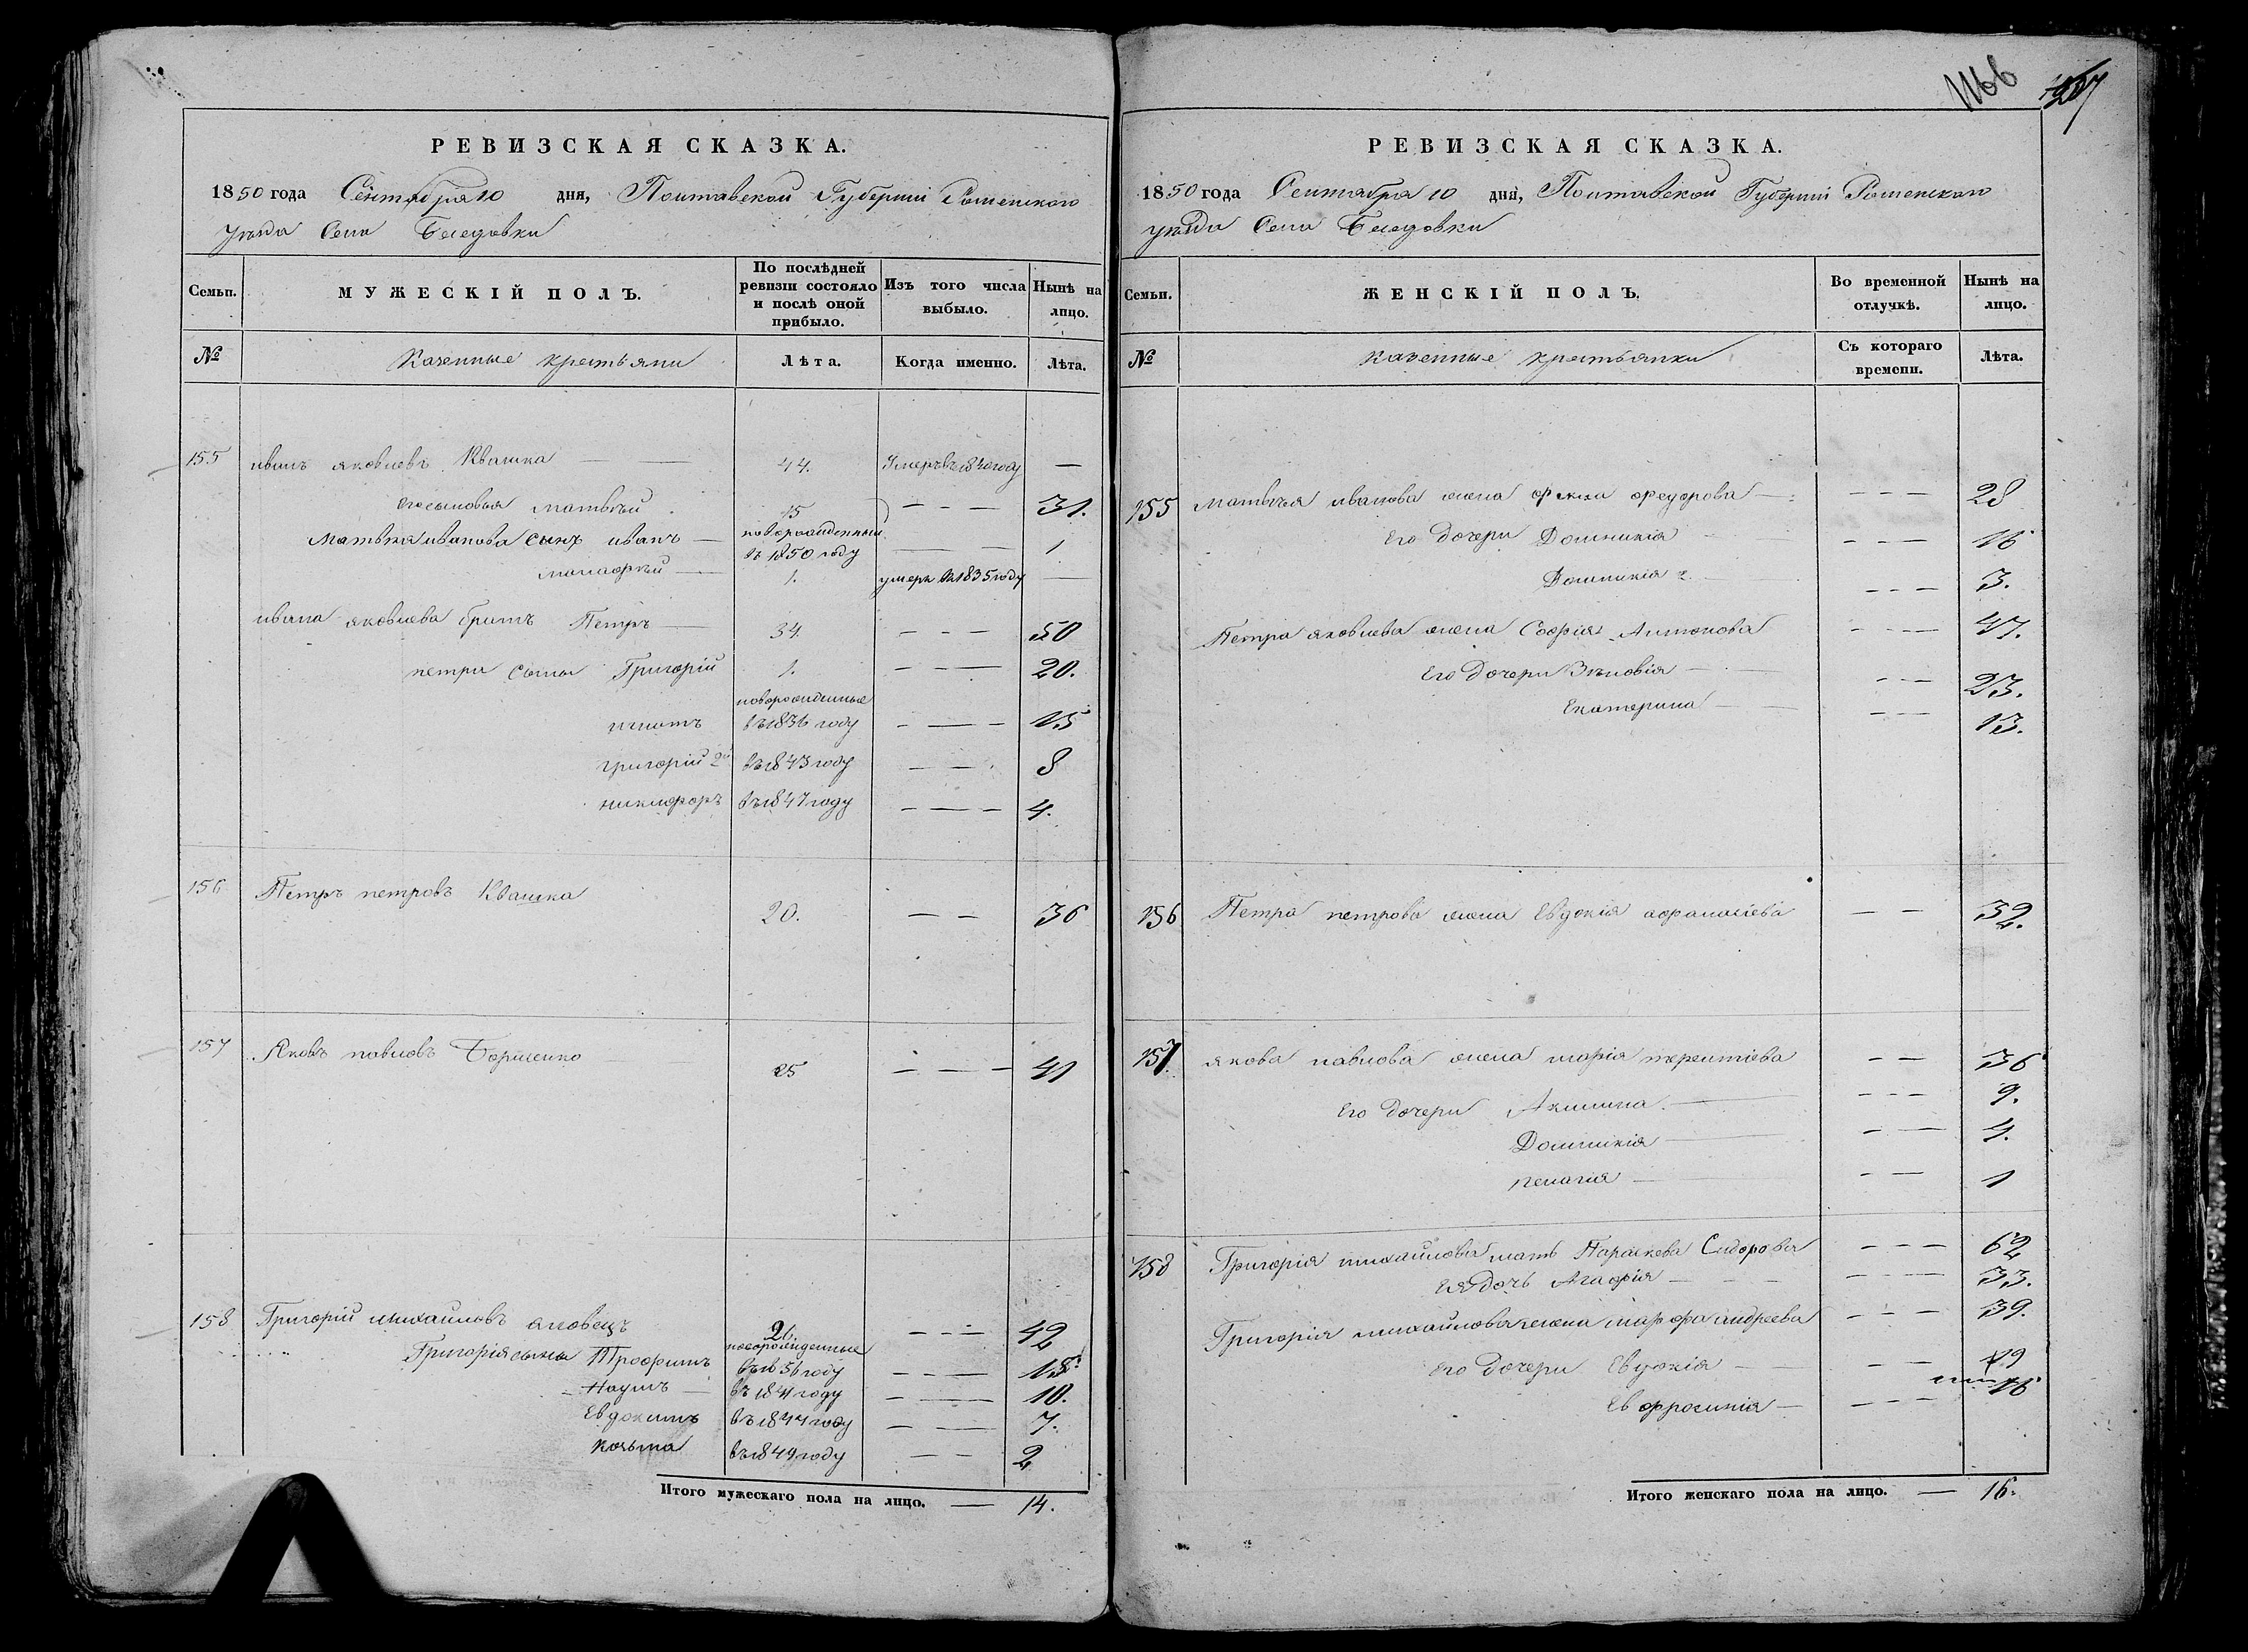 1166 207
РЕВИЗСКАЯ СКАЗКА.
1850 года Сентября 10 дня, Полтавской Губерніи Роменского
уѣзда Села Беседовки
Семьи. МУЖЕСКІЙ ПОЛЪ. По послѣдней ревизіи состояло и послѣ оной прибыло. Изъ того числа выбыло. Нынѣ на лицо.
№ Казенные крестьяни Лѣта. Когда именно. Лѣта.
155 иванъ яковлевъ Квашка 44. Умеръ въ 1840 году —
его сыновья матвѣй 15 — — — 31.
Матвѣя иванова сынъ иванъ — новорожденный въ 1850 году — — 1
— 1. умеръ въ 1835 году —
ивана яковлева братъ Петръ — 34. — — — 50
петра сыны Григорій 1. — — — 20.
новорожденные
игнатъ въ 1836 году — — — 15
григорій 2й въ 1843 году — — 8
никифоръ въ 1847 году — — — 4.
156 Петръ петровъ Квашка 20. — — 36
157 Яковъ павловъ Борисенко 25 — — — 41
158 Григорій михайловъ 26 — — — 42
новорожденные
Григорія сыны Трофимъ въ 1836 году — — — 15
Наумъ — въ 1841 году — — 10.
Евдокимъ въ 1844 году — — 7.
Козьма въ 1849 году — — 2
Итого мужескаго пола на лицо. — 14.
РЕВИЗСКАЯ СКАЗКА.
1850 года Сентября 10 дня, Полтавской Губерніи Роменского
уѣзда Села Беседовки
Семьи. ЖЕНСКІЙ ПОЛЪ. Во временной отлучкѣ. Нынѣ на лицо.
№ казенные крестьянки Съ котораго времени. Лѣта.
155 матвѣя иванова жена федорова — — — — 28
Его дочери Домникія — — — 16
Домникія 2. — — — 3.
Петра яковлева жена Софія Антонова — — — 47.
Его дочери Зѣновія — — — 23.
Екатерина — — — 13.
156 Петра петрова жена Евдокія афанасіева — — 32.
157 якова павлова жена марія терентіева — — 36
Его дочери Акилина. — — — — 9.
Домникія — — — 4.
пелагія — — — 1
158 Григорія михайлова мать Параскева Сидорова — — — 62
Ея дочь Агафія — — — — 33.
Григорія михайлова жена марфа андреева — — — 39.
Его дочери Евдокія — — — 19
Евфросинія — — — — 16
Итого женскаго пола на лицо. — 16.